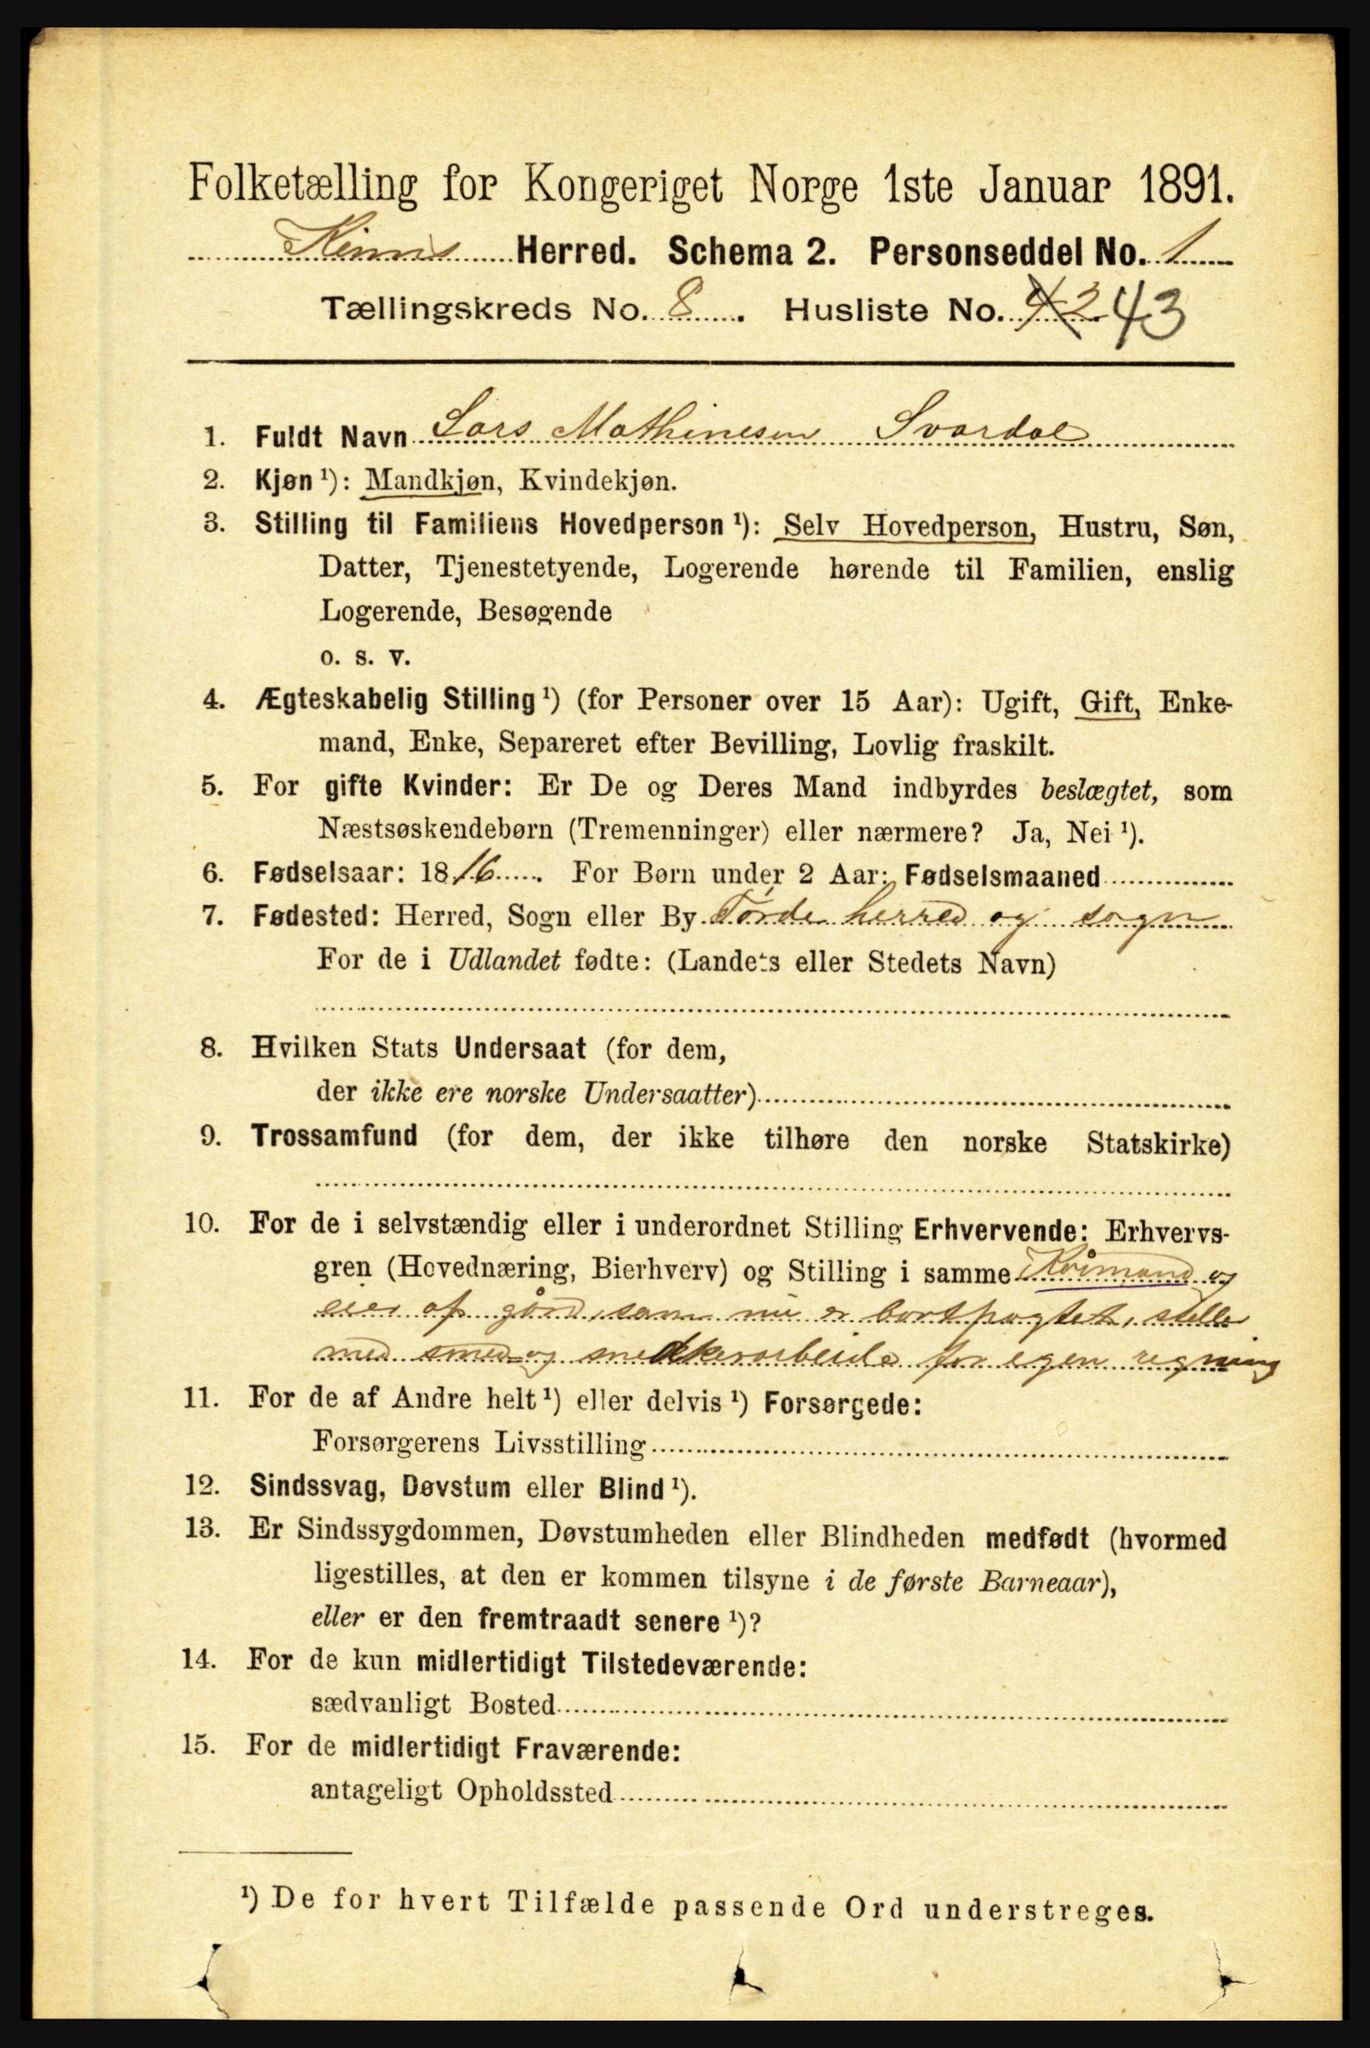 Folketælling for Kongeriget Norge 1ste Januar 1891.
Kinns Herred. Schema 2. Personseddel No. 1
Tællingskreds No. 8. Husliste No. 42 43
1. Fuldt Navn Lars Mathinesen Svardal
2. Kjøn ¹): Mandkjøn, Kvindekjøn.
3. Stilling til Familiens Hovedperson ¹): Selv Hovedperson, Hustru, Søn,
Datter, Tjenestetyende, Logerende hørende til Familien, enslig
Logerende, Besøgende
o. s. v.
4. Ægteskabelig Stilling ¹) (for Personer over 15 Aar): Ugift, Gift, Enke-
mand, Enke, Separeret efter Bevilling, Lovlig fraskilt.
5. For gifte Kvinder: Er De og Deres Mand indbyrdes beslægtet, som
Næstsøskendebørn (Tremenninger) eller nærmere? Ja, Nei ¹).
6. Fødselsaar: 1816. For Børn under 2 Aar: Fødselsmaaned
7. Fødested: Herred, Sogn eller By Førde herred og sogn
For de i Udlandet fødte: (Landets eller Stedets Navn)
8. Hvilken Stats Undersaat (for dem,
der ikke ere norske Undersaatter)
9. Trossamfund (for dem, der ikke tilhøre den norske Statskirke)
10. For de i selvstændig eller i underordnet Stilling Erhvervende: Erhvervs-
gren (Hovednæring, Bierhverv) og Stilling i samme Kårmand og
eier af gård, som nu er bortpagtet, steller
med smed- og snedkerarbeide for egen regning
11. For de af Andre helt ¹) eller delvis ¹) Forsørgede:
Forsørgerens Livsstilling
12. Sindssvag, Døvstum eller Blind ¹).
13. Er Sindssygdommen, Døvstumheden eller Blindheden medfødt (hvormed
ligestilles, at den er kommen tilsyne i de første Barneaar),
eller er den fremtraadt senere ¹)?
14. For de kun midlertidigt Tilstedeværende:
sædvanligt Bosted
15. For de midlertidigt Fraværende:
antageligt Opholdssted
¹) De for hvert Tilfælde passende Ord understreges.